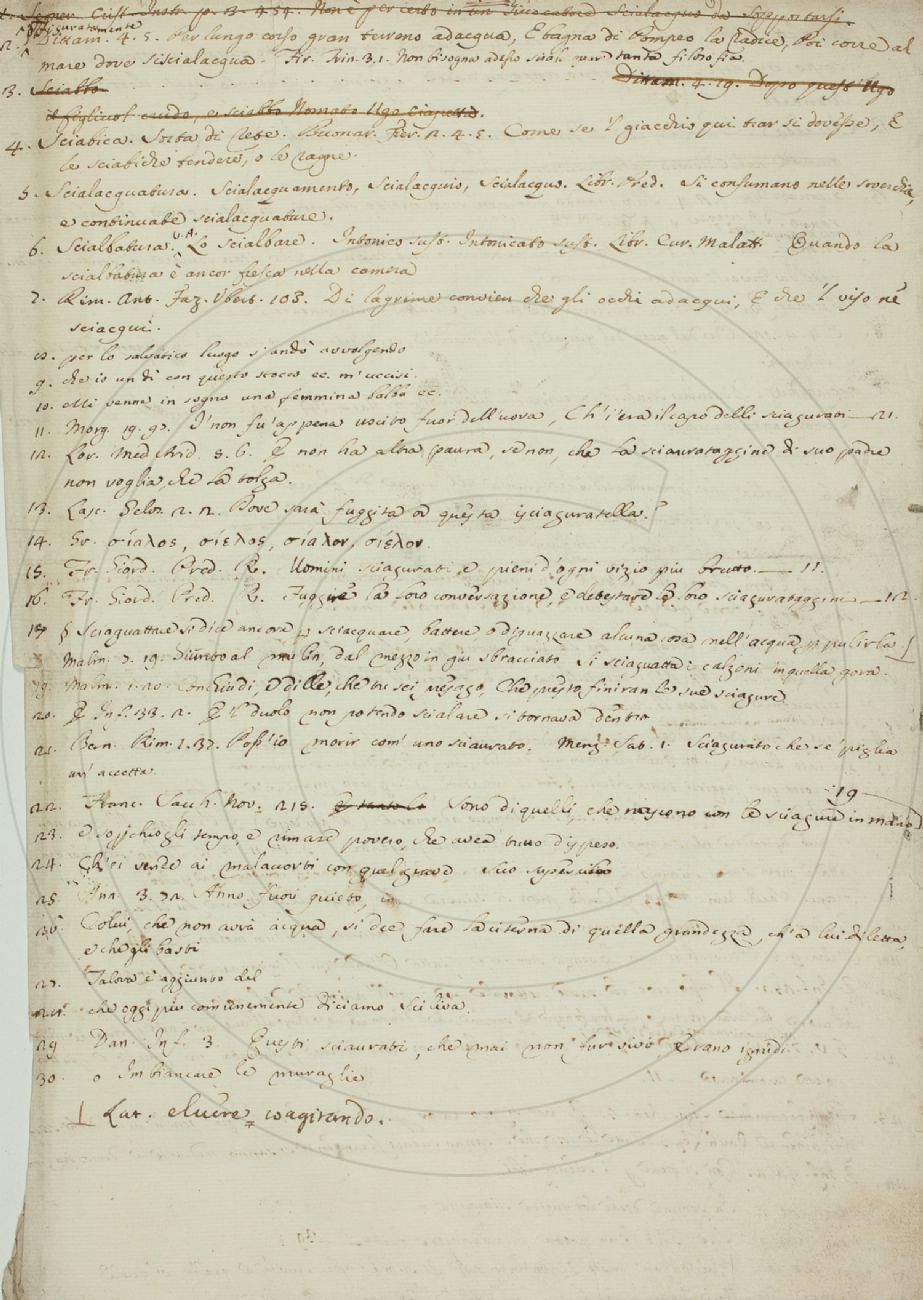 1. Segner. Crist. Instr. p. 3. 4 54. Non è per certo in un Giucatore Scialacquo da sopportarsi.
Figuratamente
2. Dittam. 4. 5. Per lungo corso gran terreno adacqua, E bagna di Pompeo la radice, Poi corre al
mare dove si scialacqua. Fir. Trin. 3. 1. Non bisogna adesso scialacquar tanta filosofia
3. Sciabbo. Dittam. 4. 19. Dopo quest' Ugo
il figliuol suo, o sciabbo Nomato Ugo Ciapetta.
4. Sciabica. Sorta di Rete. Buonar. Fier. 2. 4. 5. Come se 'l giacchio qui trar si dovesse, E
le sciabiche tendere, o le ragne.
5. Scialacquatura. Scialacquamento, scialacquio, scialacquo. Libr. Pred. Si consumano nelle soverchie,
e continuate scialacquature.
6. Scialbatura. V. A. Lo scialbare. Intonico sust. Intonicato sust. Libr. Cur. Malatt. Quando la
scialbatura è ancor fresca nella camera
7. Rim. Ant. Faz. Ubert. 108. Di lagrime convien che gli occhi adacqui, E che 'l viso ne
sciacqui.
10. per lo salvatico luogo s'andò avvolgendo
9. che io un dì con questo stocco ec. m'uccisi.
10. Mi venne in sogno una femmina balba ec.
11. Morg. 19. 97. I' non fu' appena uscito fuor dell'uova, Ch' i' era il capo delli sciagurati 21.
12. Lor. Med. Arid. 5. 6. E non ha altra paura, se non, che la sciaurataggine di suo padre
non voglia che la tolga.
13. Lasc. Gelos. 2. 2. Dove sarà fuggita or questa isciaguratella?
14. Gr. σίαλος, σίελος, σίαλον, σιελον.
15. Fr. Giord. Pred. R. Uomini sciagurati e pieni d'ogni vizio più brutto. 11.
16. Fr. Giord. Pred. R. Fuggire la loro conversazione, e detestare le loro sciagurataggini 12.
17 § Sciaguattare si dice ancora p sciacquare, battere o diguazzare alcuna cosa nell'acqua p pulirla
Malm. 7. 19. Giunto al mulin, dal mezzo in giù sbracciato Si sciaguatta i calzoni in quella gora.
19. Malm. 1. 20. Conchiudi, e dille, che tu sei presago, Che presto finiran le sue sciagure
20. E Inf. 33. 2. E 'l duolo non potendo scialare si tornava dentro
21. Bern. Rim. 1. 37. Poss'io morir com' uno sciaurato. Menz. Sat. 1. Sciagurato che se' piglia
un' accetta. 19
22. Franc. Sacch. Nov. 215. Sono di quelli, che nascono con le sciagure in mano
23. e sopichiogli tempo, e rimase povero, che avea tutto dispeso.
24. Ch'ei vende ai malaccorti con quel grave Suo supercilio
25. Ann. 3. 72. Anno fuori quieto,
26. Colui, che non avrà acqua, si dee fare la citerna di quella grandezza, ch'a lui diletta,
e che gli basti
27. Talora è aggiunto del
28. che oggi più comunemente diciamo Sciliva.
29 Dan. Inf. 3. Questi sciaurati, che mai non fur vivi Erano ignudi
30. o Imbiancare le muraglie
Lat. eluere coagitando.